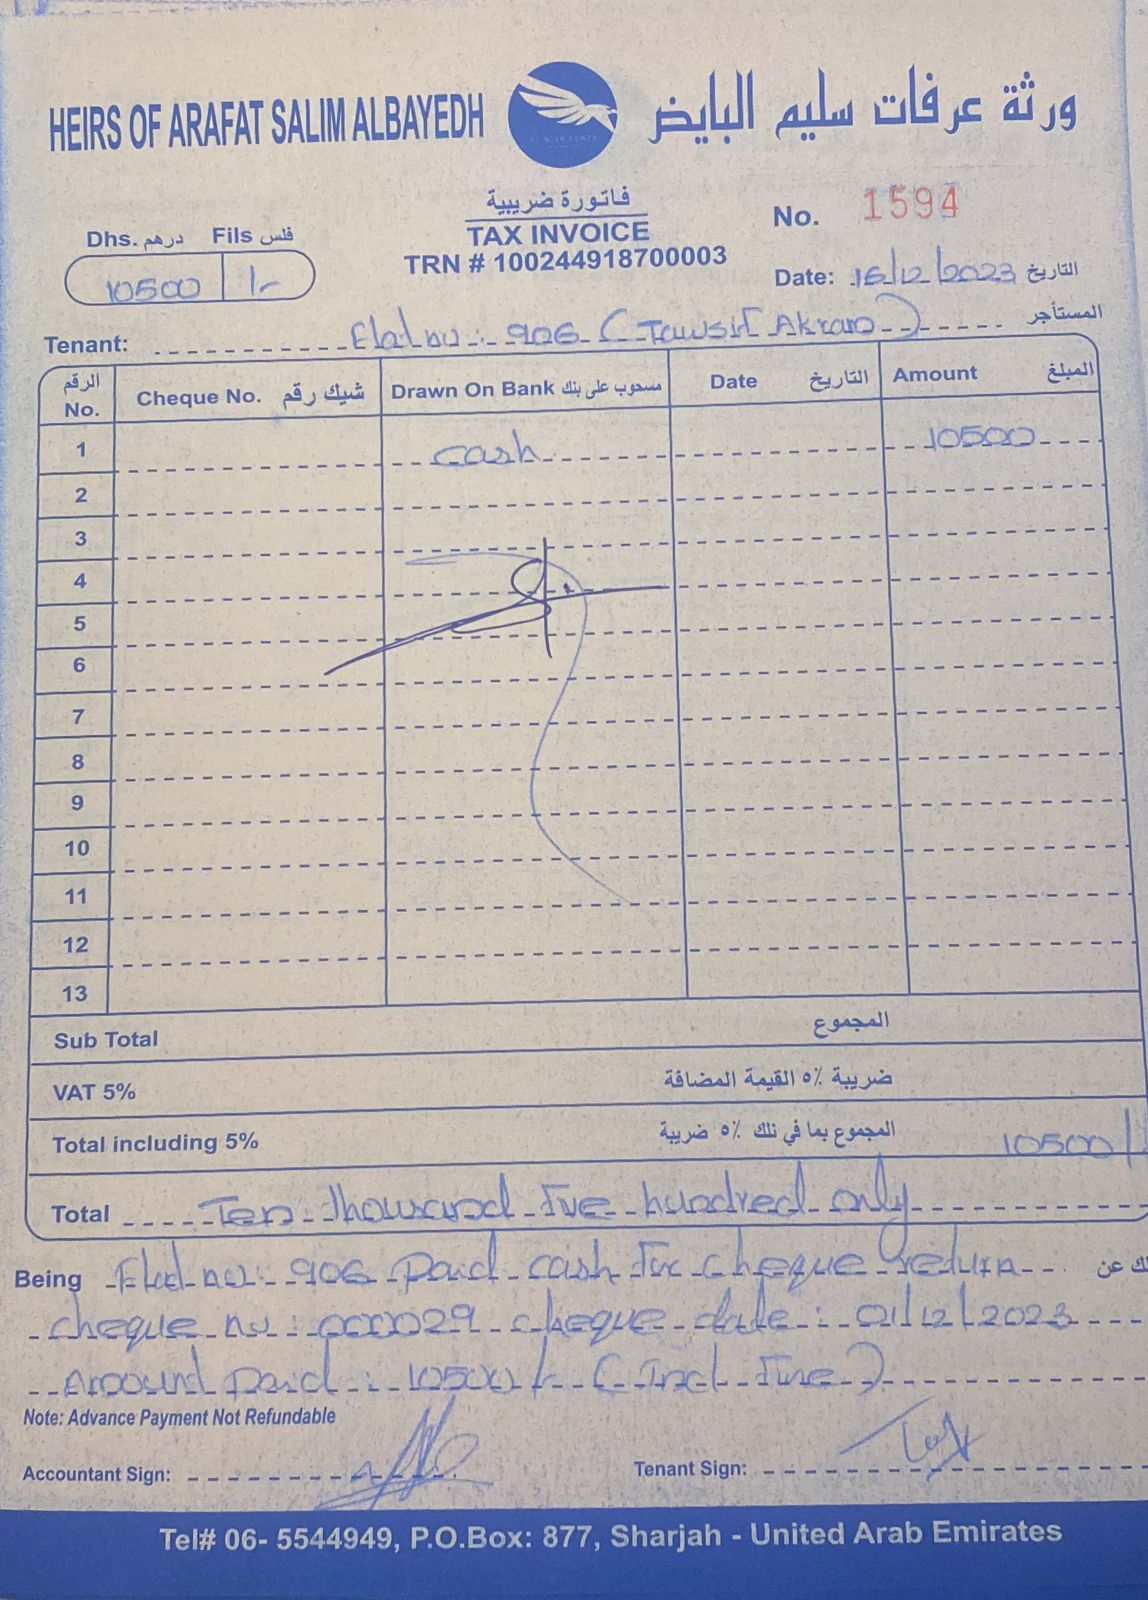 HEIRS OF ARAFAT SALIM ALBAYEDH
ورثة عرفات سليم البايض
فاتورة ضريبية
TAX INVOICE
TRN # 100244918700003
No. 1594
Dhs. درهم Fils فلس
10500 /-
Date: 16/12/2023 التاريخ
Tenant: Flat no: 906 (Tawsif Akram) المستأجر
الرقم No. Cheque No. شيك رقم Drawn On Bank مسحوب على بنك Date التاريخ Amount المبلغ
1 Cash 10500
2
3
4
5
6
7
8
9
10
11
12
13
Sub Total المجموع
VAT 5% ضريبة ٥٪ القيمة المضافة
Total including 5% المجموع بما في ذلك ٥٪ ضريبة 10500/
Total Ten thousand five hundred only
Being Flat no: 906 paid cash for cheque return
cheque no: 000029 cheque date: 01/12/2023
Amount paid: 10500/- (Incl fine)
Note: Advance Payment Not Refundable
Accountant Sign: Tenant Sign:
Tel# 06- 5544949, P.O.Box: 877, Sharjah - United Arab Emirates